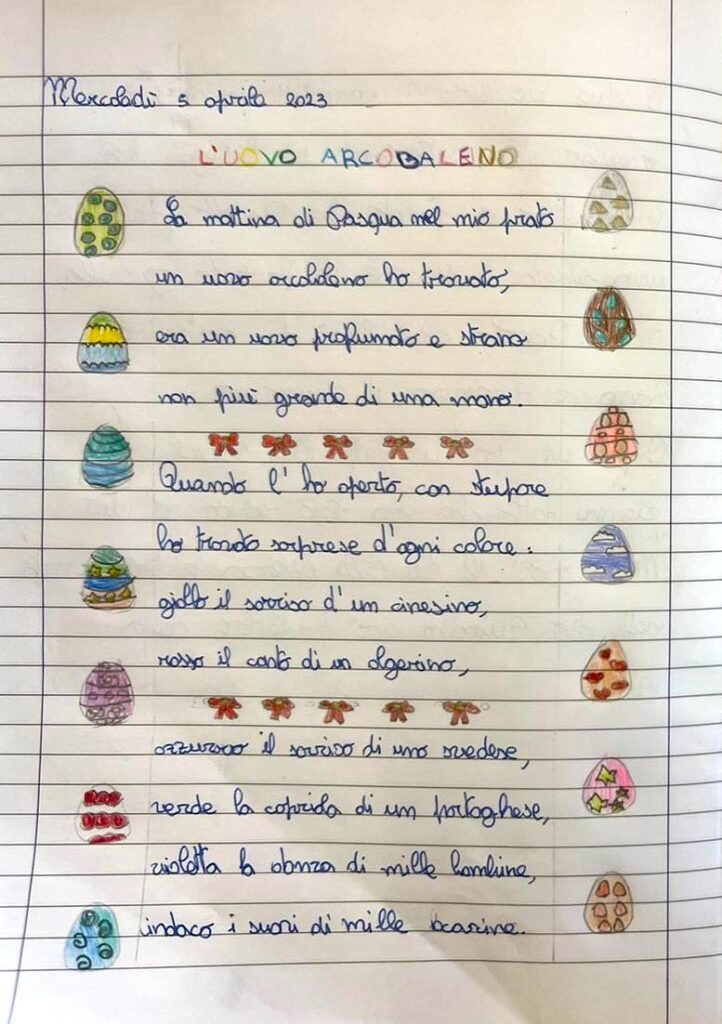 Mercoledì 5 aprile 2023
L'UOVO ARCOBALENO
La mattina di Pasqua nel mio prato
un uovo arcobaleno ho trovato,
era un uovo profumato e strano
non più grande di una mano.
Quando l'ho aperto, con stupore
ho trovato sorprese d'ogni colore:
giallo il sorriso d'un cinesino,
rosso il canto di un algerino,
azzurro il sorriso di uno svedese,
verde la capriola di un portoghese,
violetta la danza di mille bambine,
indaco i suoni di mille ocarine.